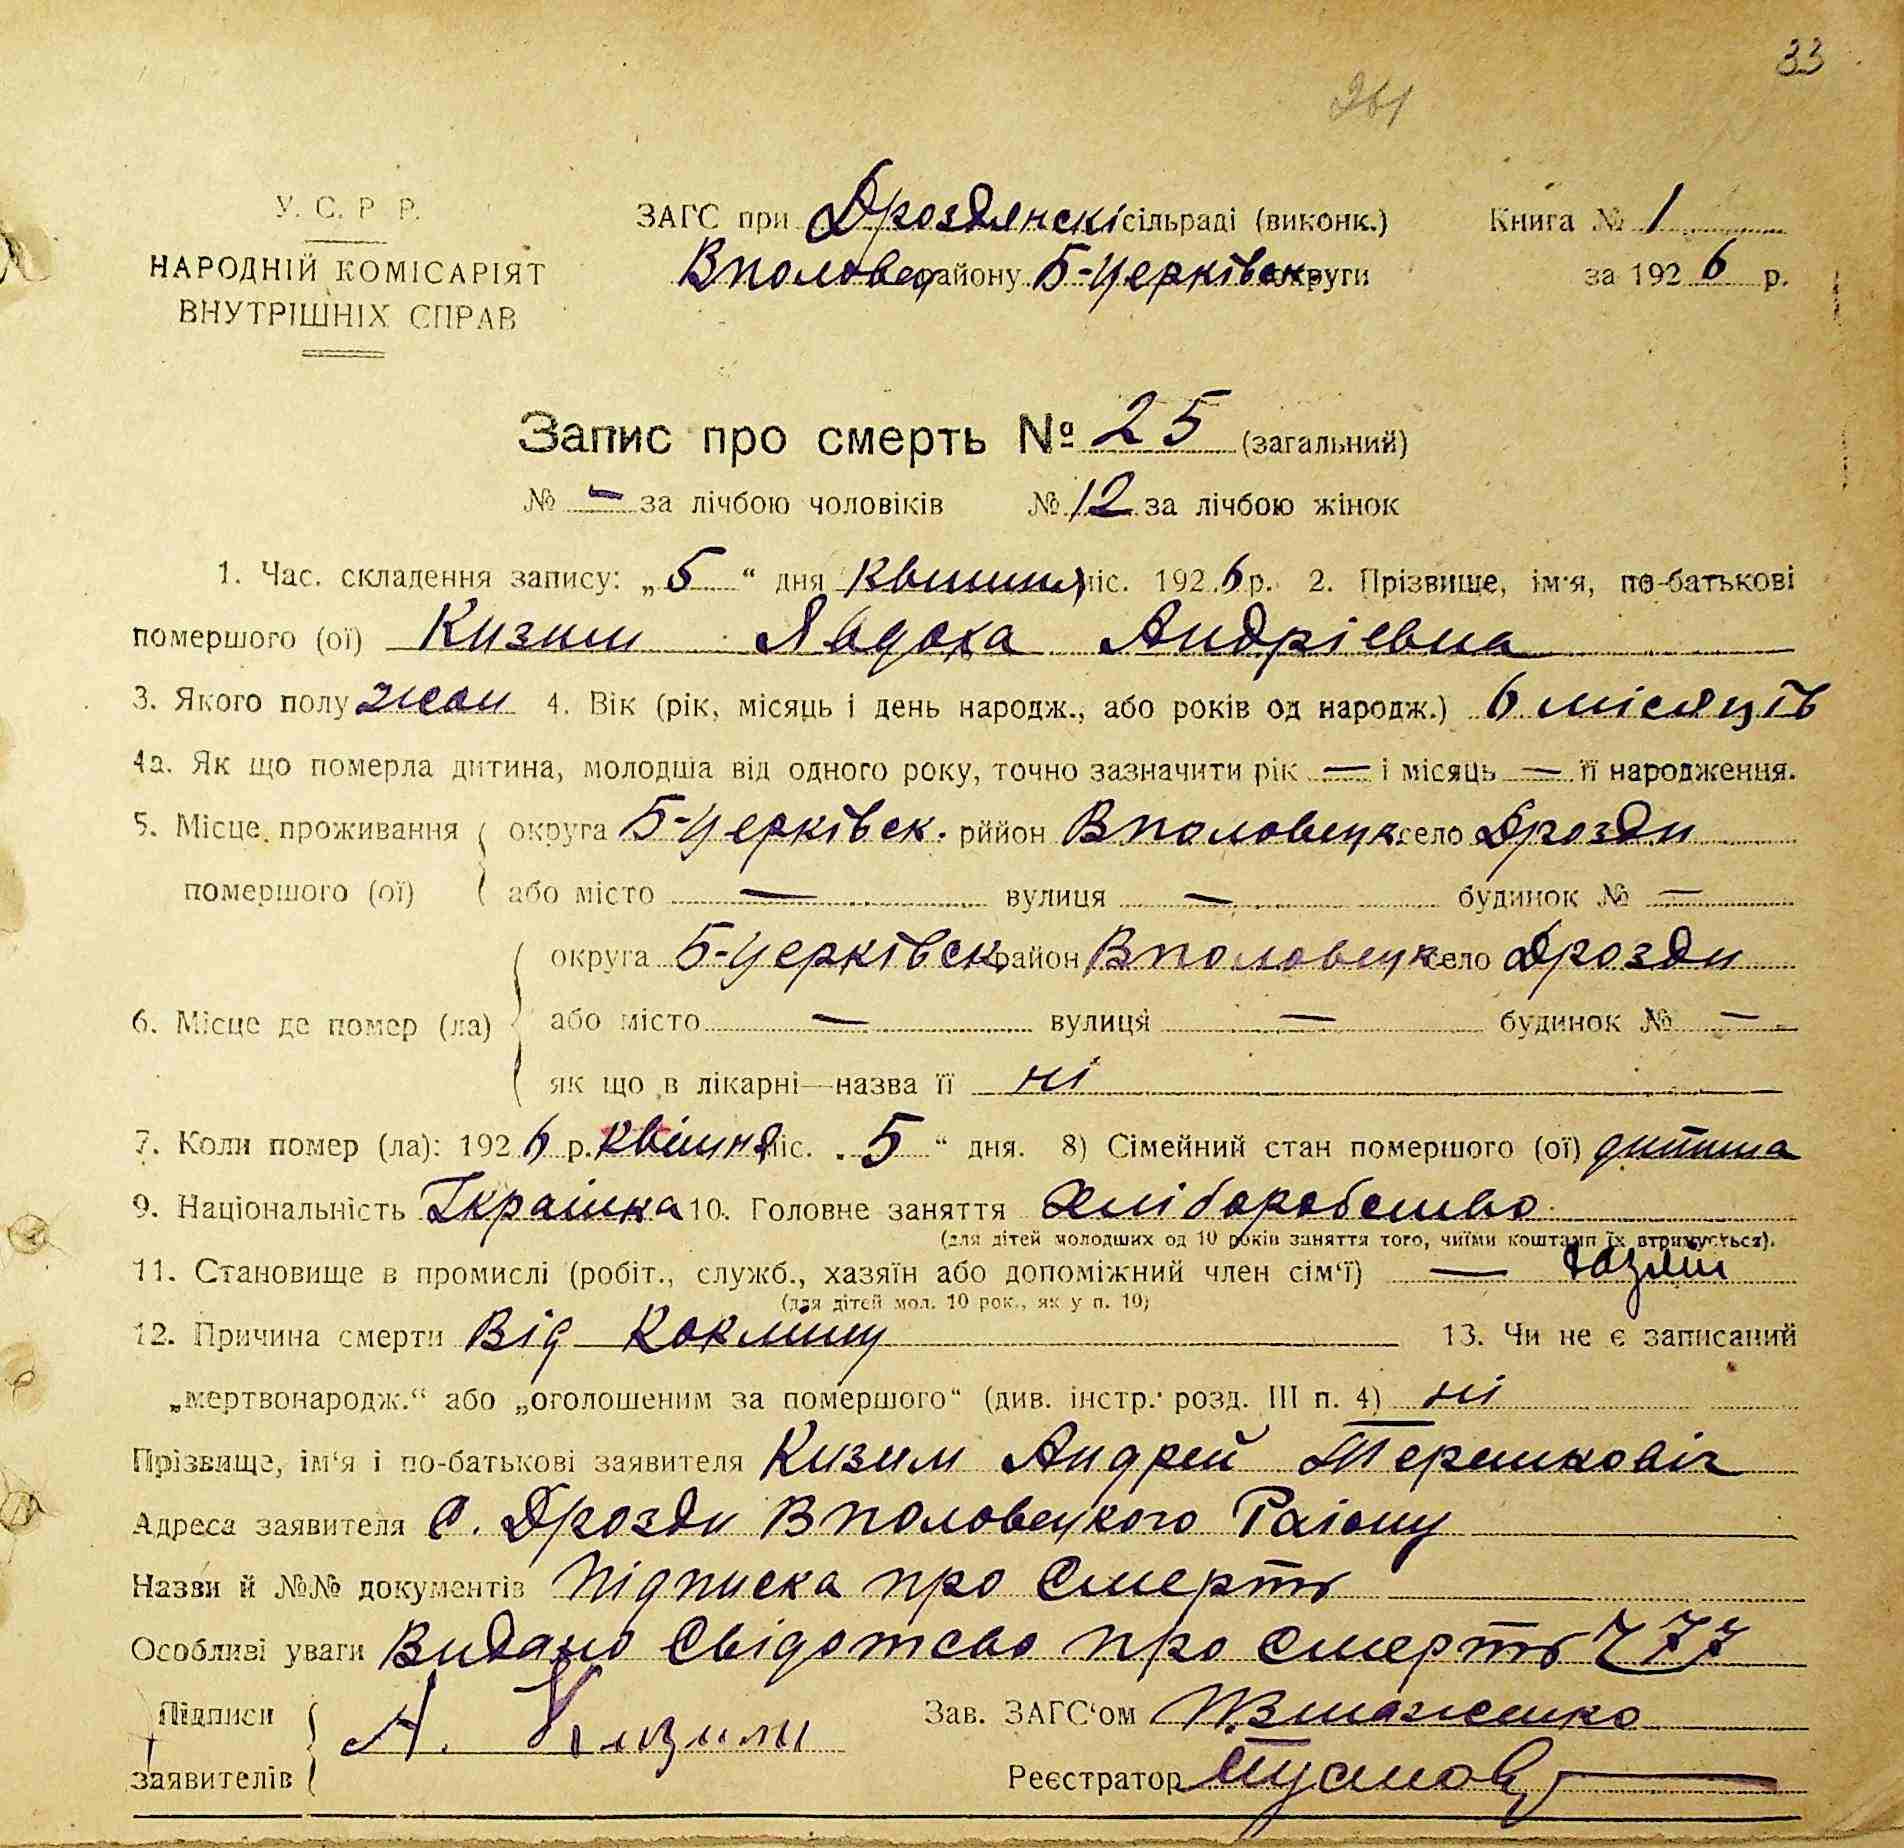 33
261
У. С. Р. Р.
НАРОДНІЙ КОМІСАРІЯТ
ВНУТРІШНІХ СПРАВ
ЗАГС при Дроздянскі сільраді (виконк.)
Вполовец району Б-Церківск округи
Книга № 1
за 1926 р.
Запис про смерть № 25 (загальний)
№ - за лічбою чоловіків № 12 за лічбою жінок
1. Час. складення запису: „5“ дня квітня міс. 1926 р. 2. Прізвище, ім'я, по-батькові
помершого (ої) Кизим Явдоха Андрієвна
3. Якого полу жон 4. Вік (рік, місяць і день народж., або років од народж.) 6 місяців
4а. Як що померла дитина, молодша від одного року, точно зазначити рік — і місяць — її народження.
5. Місце проживання округа Б-Церківск. рййон Вполовецк. село Дрозди
помершого (ої) або місто — вулиця — будинок № —
округа Б-Церківск. район Вполовецк. село Дрозди
6. Місце де помер (ла) або місто — вулиця — будинок № —
як що в лікарні—назва її ні
7. Коли помер (ла): 1926 р. квітня міс. „5“ дня. 8) Сімейний стан помершого (ої) дитина
9. Національність Украінка 10. Головне заняття Хліборобство
(для дітей молодших од 10 років заняття того, чиїми коштами їх втримується).
11. Становище в промислі (робіт., служб., хазяїн або допоміжний член сім'ї) — хазяін
(для дітей мол. 10 рок., як у п. 10)
12. Причина смерти Від Коклюшу 13. Чи не є записаний
„мертвонародж.“ або „оголошеним за помершого“ (див. інстр. розд. III п. 4) ні
Прізвище, ім'я і по-батькові заявителя Кизим Андрей Терешковіч
Адреса заявителя С. Дрозди Вполовецкого Раіону
Назви й №№ документів Підписка про Смерть
Особливі уваги Видано Свідотство про смерть ч 77
Підписи А. Кизим Зав. ЗАГС'ом
заявителів Реєстратор